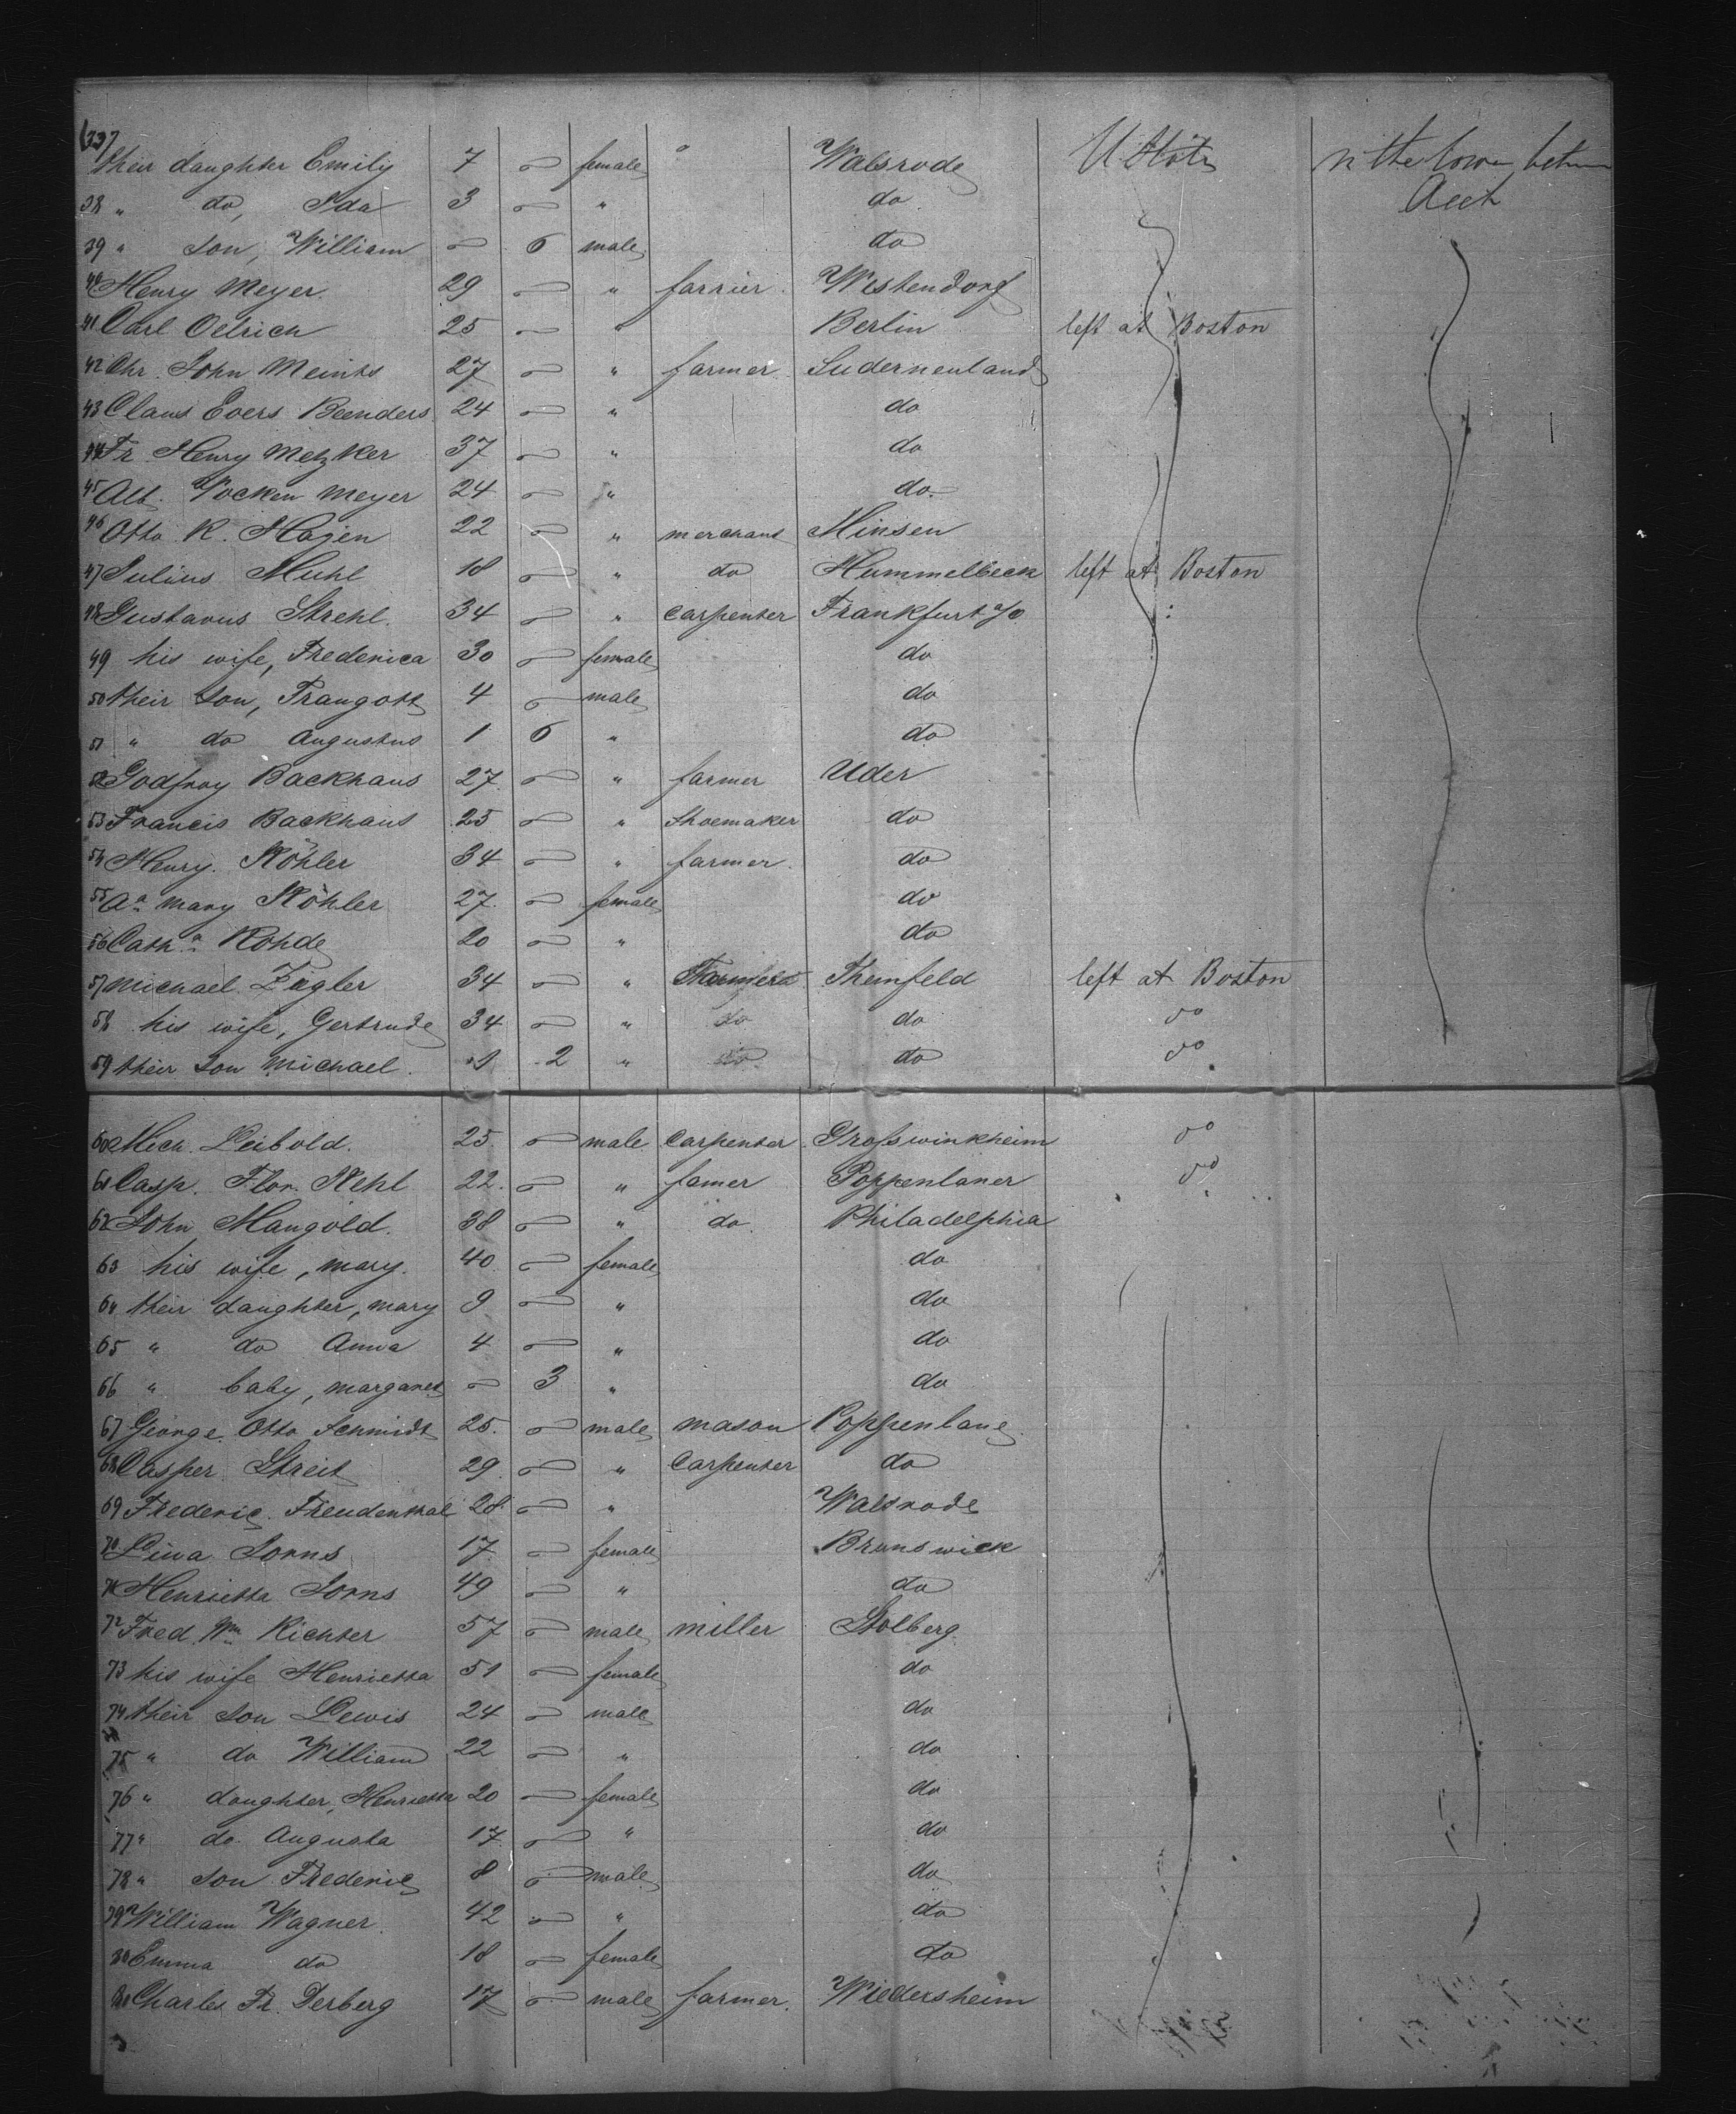 (37)
their daughter Emily 7 female Walsrode U States in the lower betwe
38 " do, Ida 3 " do Deck
39 " son, William 6 male do
40 Henry Meyer. 29 " farrier. Westendorf
41 Carl Oelrich 25 " Berlin left at Boston
42 Chr. John Meints 27 " farmer Sudernenland
43 Claus Evers Beenders 24 " do
44 Fr. Henry Metzker 37 " do
45 Alb. Vocken Meyer 24 " do
46 Otto R. Hajen 22 " merchant Minsen
47 Julius Muhl 18 " do Hummelbeck left at Boston
48 Gustavus Strehl. 34 " carpenter Frankfurt a/O
49 his wife, Frederica 30 female do
50 their son, Traugott 4 male do
51 " do Augustus 1 6 " do
52 Godfroy Backhaus 27 " farmer Uder
53 Francis Backhaus 25 " Shoemaker do
54 Henry. Köhler 34 " farmer. do
55 Aa mary Köhler 27. female do
56 Catha Rohde 20 " do
57 Michael Zigler 34 " Themfeld left at Boston
58 his wife, Gertrude 34 " do do do
59 their son Michael. 2 " do do do
60 Mich. Leibold. 25. male carpenter Grosswinkheim do
61 Casp. Flor. Kehl 22. " famer Poppenlauer do
62 John Mangold. 38 " do Philadelphia
63 his wife, mary. 40 female do
64 their daughter, mary 9 " do
65 " do Anna 4 " do
66 " baby, margaret 3 " do
67 George Otto Schmidt 25. male mason Poppenlaue
68 Casper Streit 29 " Carpenter do
69 Frederic Freudenthal 28 " Walsrode
70 Lina Sorns 17 female Brunswick
71 Henrietta Sorns 49 " do
72 Fred. Wm Richter 57 male miller Stolberg
73 his wife Henrietta 51 female do
74 their son Lewis 24 male do
75 " do William 22 " do
76 " daughter, Henrietta 20 female do
77 " do Augusta 17 " do
78 " son Frederic 8 male do
79 William Wagner. 42 " do
80 Emma do 18 female do
81 Charles Fr. Derberg 17 male farmer. Wiedersheim